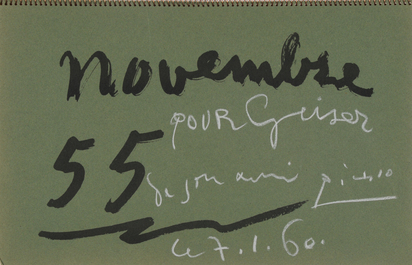 Novembre
POUR Geiser
55
de son ami Picasso
le 7.1.60.